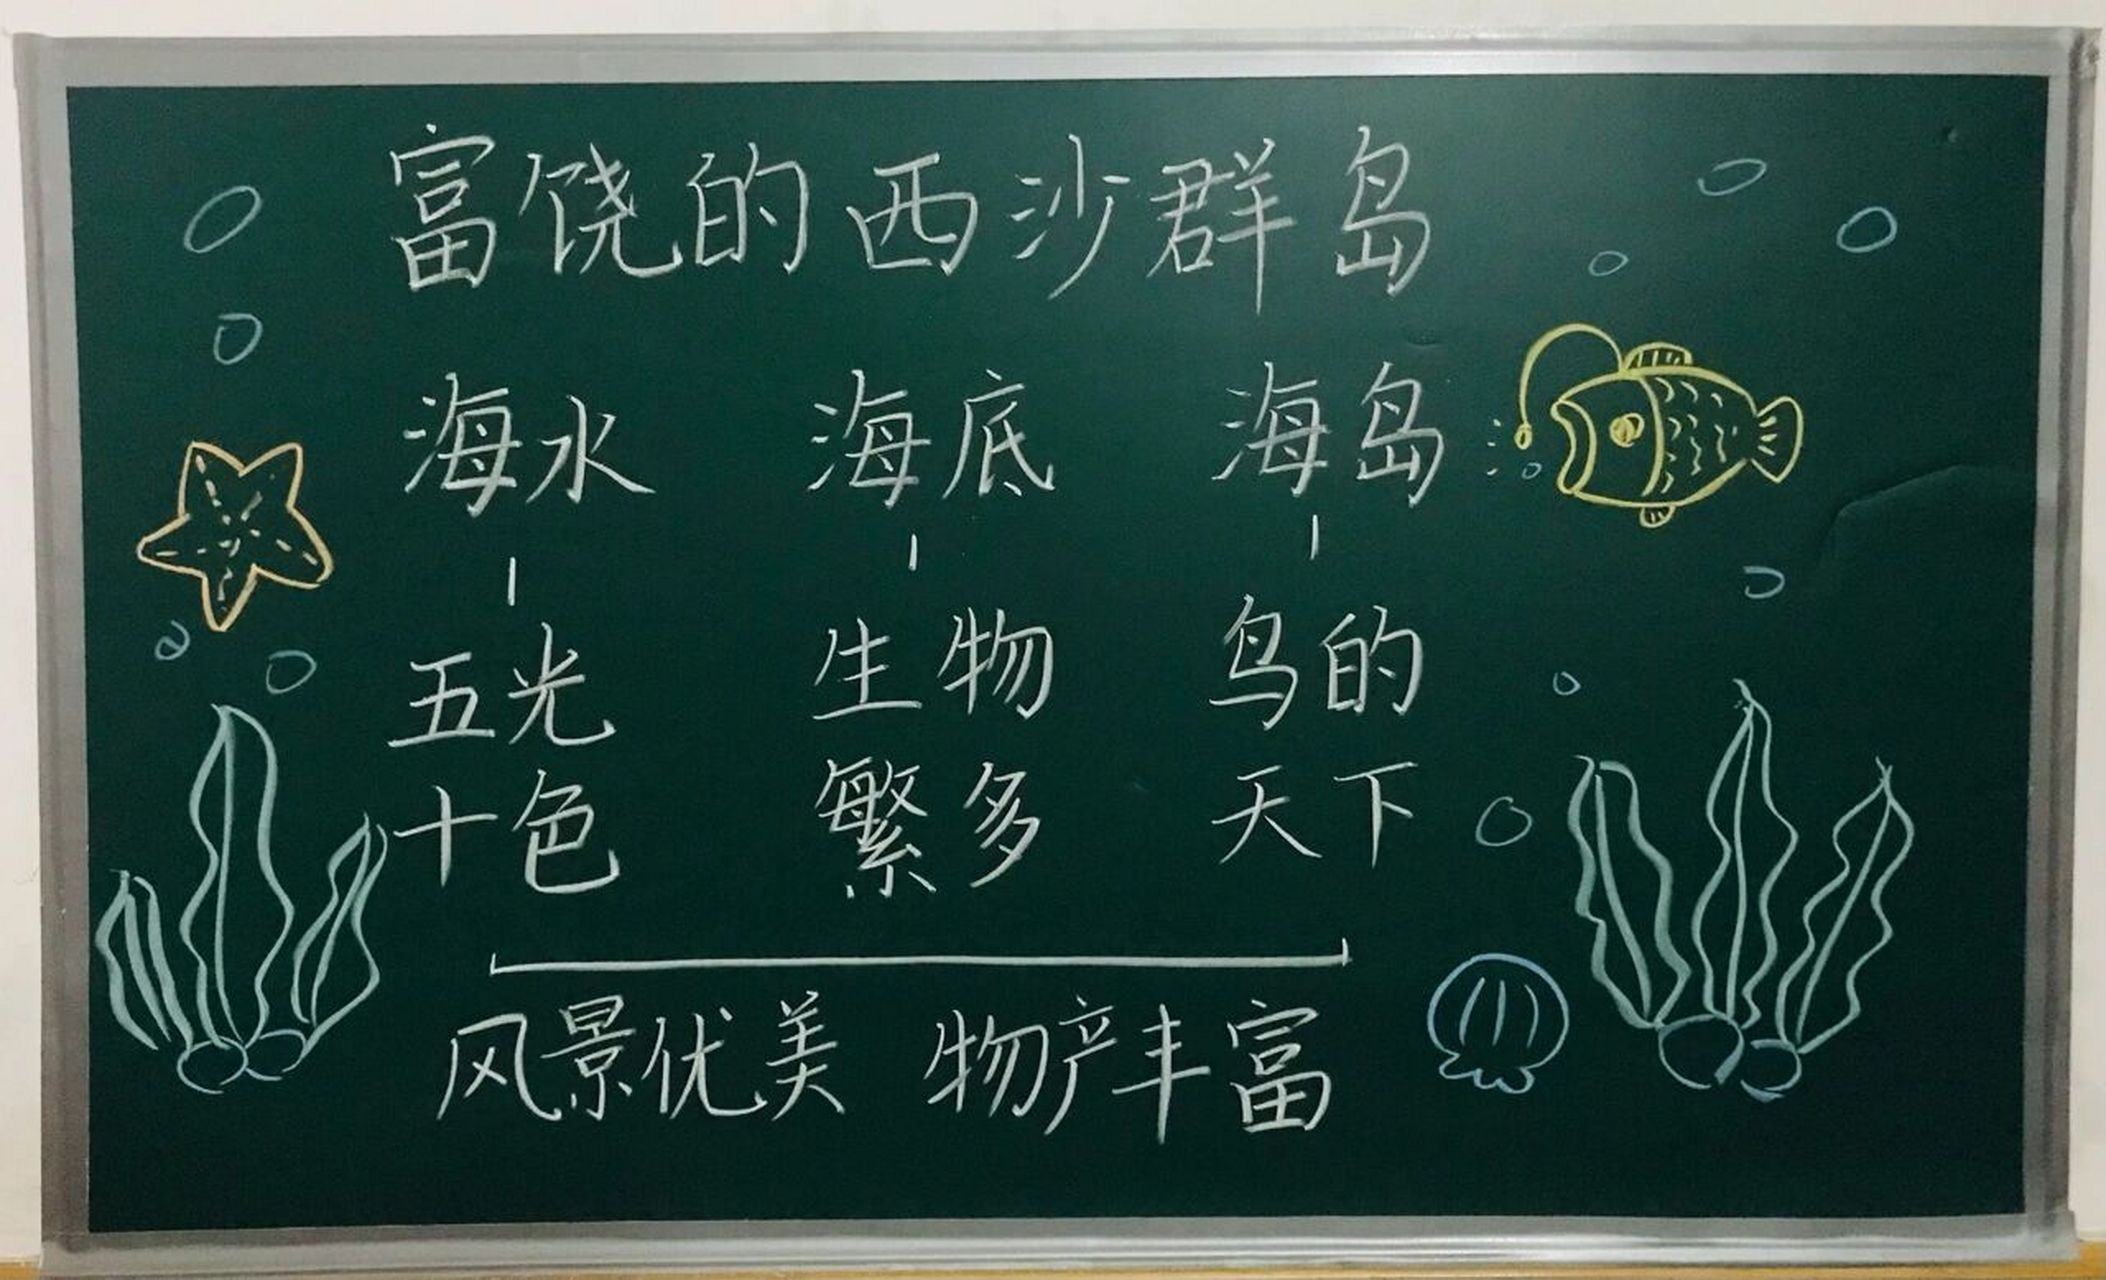 富饶的西沙群岛
海水 海底 海岛
五光 生物 鸟的
十色 繁多 天下
风景优美 物产丰富